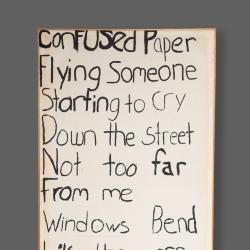 conFUSed Paper
Flying Someone
Starting to Cry
Down the Street
Not too far
From me
Windows Bend